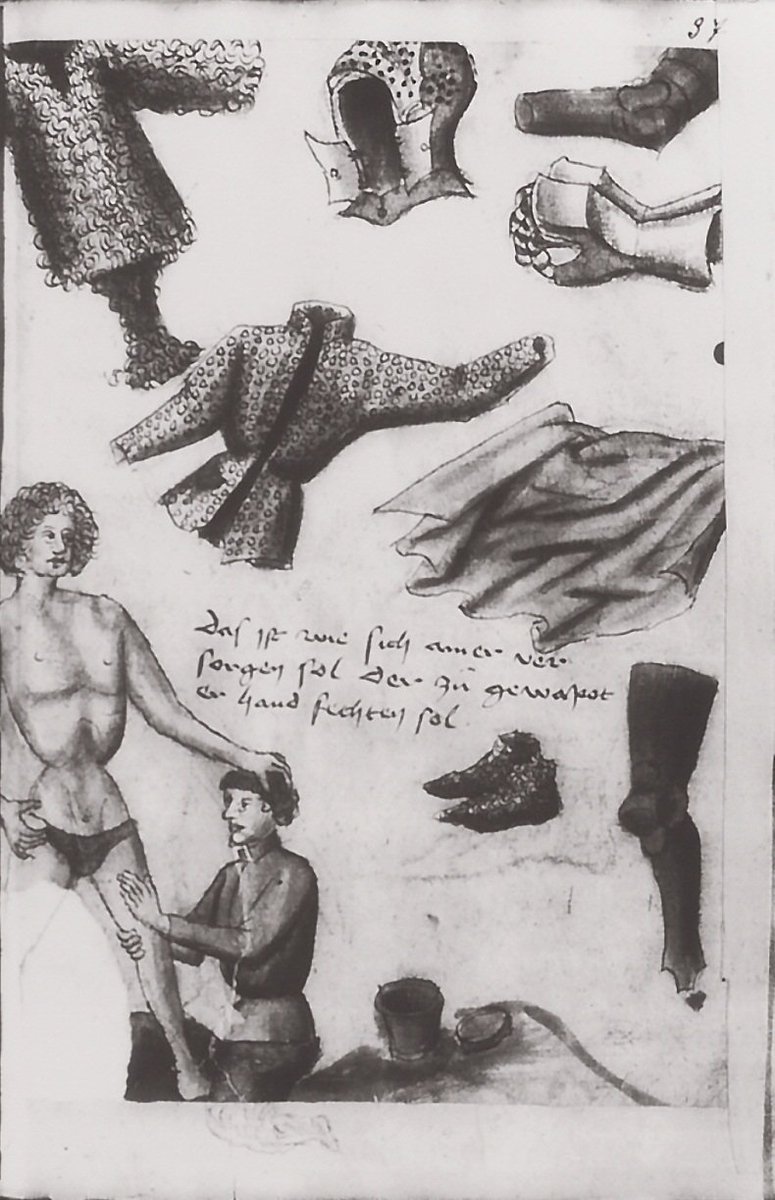 37
das ist wie sich ainer ver
sorgen sol der zü gewapot
er hand fechten sol